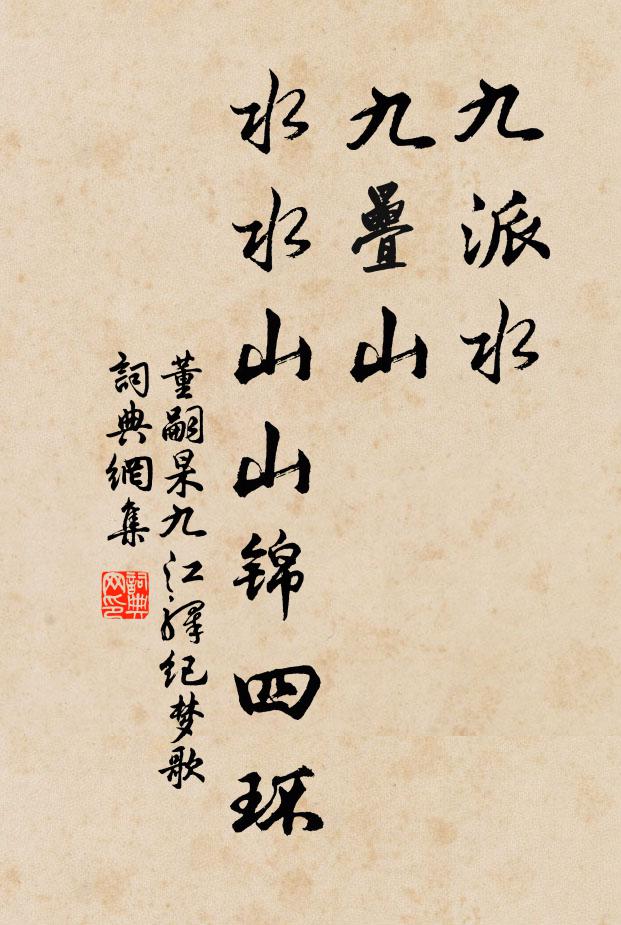 九派水
九疊山
水水山山锦四环
董嗣杲九江驛纪梦歌
詞典網集
詞典
网印